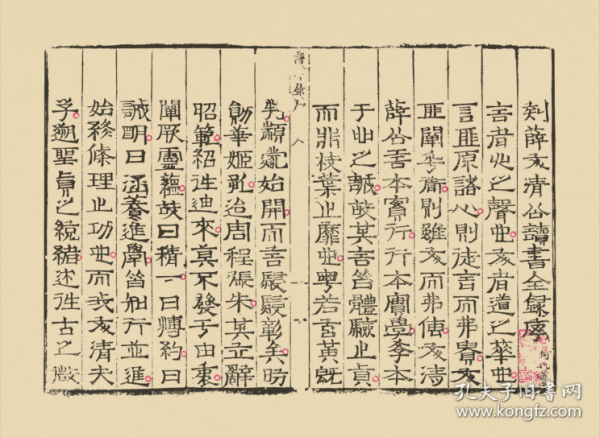 刻薛文清公讀書全錄序
言者心之聲也文者道之華也
言匪原諸心則徒言而弗貴文
匪闡乎衜則雖文而弗傳文清
薛公言本實行行本實學學本
于心之誠故其言皆體厥止貞
而非枝葉止靡也粵若
顓蒙始開而言寖寖彰矣昉
勛華姬孔迨周程張朱其立辭
昭範紹往迪來莫不發于由衷
闡厥靈蘊故曰精一曰博約曰
誠明曰涵養進學皆知行並進
始終條理止功也而我文清夫
子遡聖眞之統緒述往古之微
孔夫子旧书网
www.kongfz.com